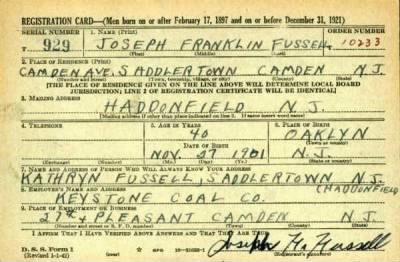 REGISTRATION CARD—(Men born on or after February 17, 1897 and on or before December 31, 1921)
SERIAL NUMBER 1. NAME (Print) ORDER NUMBER
T 929 JOSEPH FRANKLIN FUSSELL 10233
(First) (Middle) (Last)
2. PLACE OF RESIDENCE (Print)
CAMDEN AVE, SADDLERTOWN CAMDEN N.J.
(Number and street) (Town, township, village, or city) (County) (State)
[THE PLACE OF RESIDENCE GIVEN ON THE LINE ABOVE WILL DETERMINE LOCAL BOARD
JURISDICTION; LINE 2 OF REGISTRATION CERTIFICATE WILL BE IDENTICAL]
3. MAILING ADDRESS
HADDONFIELD N.J.
[Mailing address if other than place indicated on line 2. If same insert word same]
4. TELEPHONE 5. AGE IN YEARS 6. PLACE OF BIRTH
40 OAKLYN
DATE OF BIRTH (Town or county)
NOV. 27 1901 N.J.
(Exchange) (Number) (Mo.) (Day) (Yr.) (State or country)
7. NAME AND ADDRESS OF PERSON WHO WILL ALWAYS KNOW YOUR ADDRESS
KATHRYN FUSSELL, SADDLERTOWN N.J.
8. EMPLOYER'S NAME AND ADDRESS (HADDONFIELD
KEYSTONE COAL CO.
9. PLACE OF EMPLOYMENT OR BUSINESS
27th & PLEASANT CAMDEN N.J.
(Number and street or R. F. D. number) (Town) (County) (State)
I AFFIRM THAT I HAVE VERIFIED ABOVE ANSWERS AND THAT THEY ARE TRUE.
D. S. S. Form 1
(Revised 1-1-42) (over) GPO Joseph F. Fussell
(Registrant's signature)